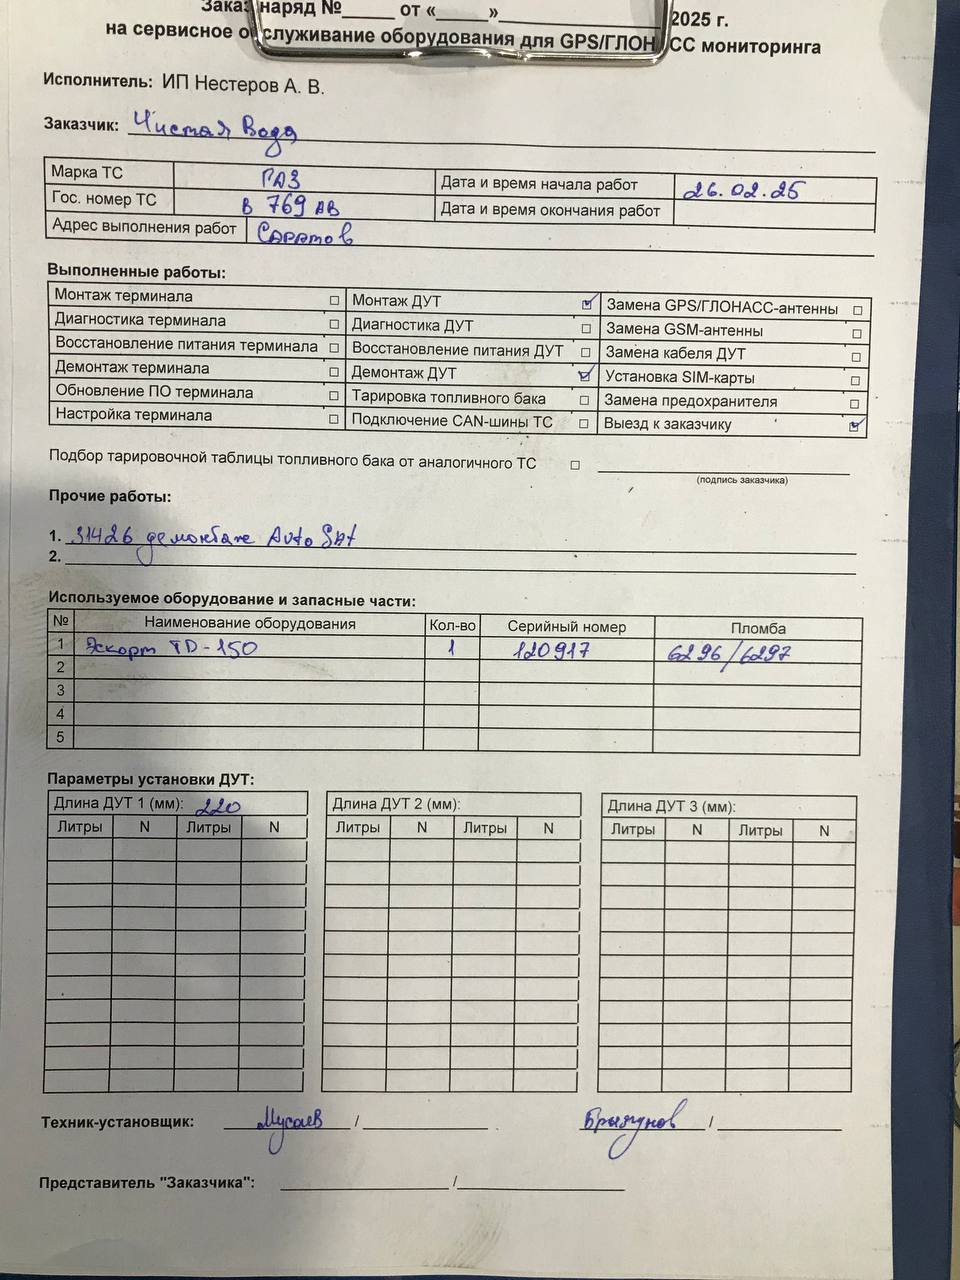 Заказ наряд №_____ от «_____»_______________ 2025 г.
на сервисное обслуживание оборудования для GPS/ГЛОНАСС мониторинга
Исполнитель: ИП Нестеров А. В.
Заказчик: Чистая Вода
Марка ТС ГАЗ Дата и время начала работ 26.02.25
Гос. номер ТС В 769 АВ Дата и время окончания работ
Адрес выполнения работ Саратов
Выполненные работы:
Монтаж терминала ☐ Монтаж ДУТ ☑ Замена GPS/ГЛОНАСС-антенны ☐
Диагностика терминала ☐ Диагностика ДУТ ☐ Замена GSM-антенны ☐
Восстановление питания терминала ☐ Восстановление питания ДУТ ☐ Замена кабеля ДУТ ☐
Демонтаж терминала ☐ Демонтаж ДУТ ☑ Установка SIM-карты ☐
Обновление ПО терминала ☐ Тарировка топливного бака ☐ Замена предохранителя ☐
Настройка терминала ☐ Подключение CAN-шины ТС ☐ Выезд к заказчику ☑
Подбор тарировочной таблицы топливного бака от аналогичного ТС ☐
(подпись заказчика)
Прочие работы:
1. 31426 демонтаж AutoSat
2.
Используемое оборудование и запасные части:
№ Наименование оборудования Кол-во Серийный номер Пломба
1 Эскорт TD-150 1 120917 6296/6297
2
3
4
5
Параметры установки ДУТ:
Длина ДУТ 1 (мм): 220 Длина ДУТ 2 (мм): Длина ДУТ 3 (мм):
Литры N Литры N Литры N Литры N Литры N Литры N
Техник-установщик: Мусаев / /
Представитель "Заказчика": /